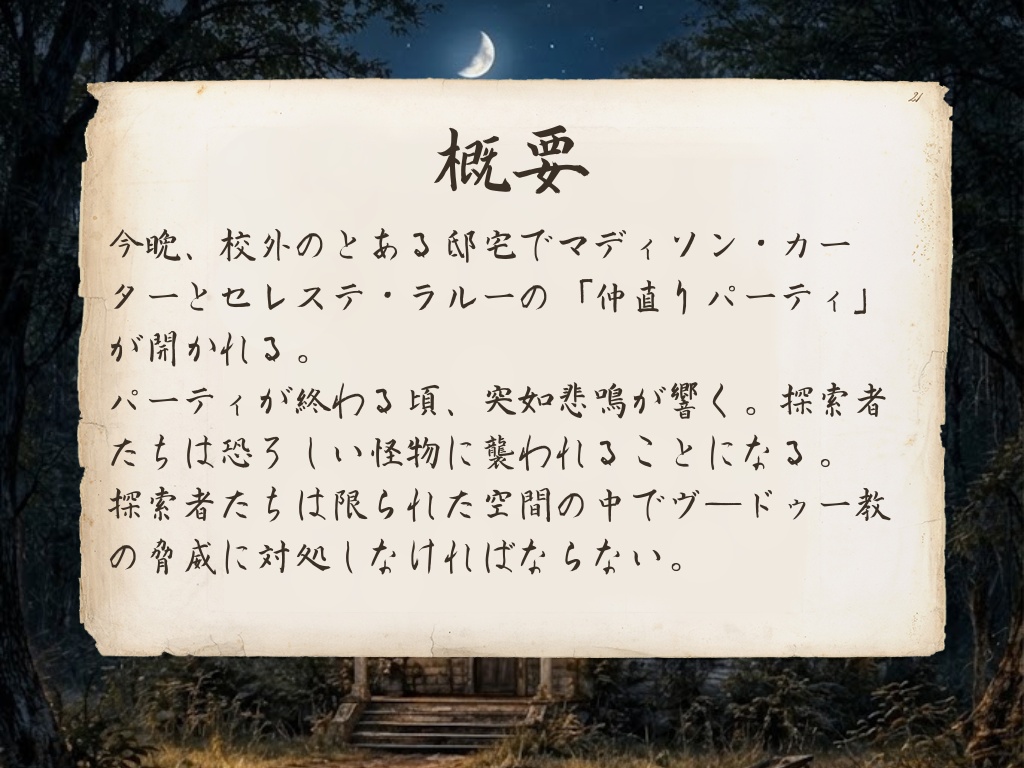 概要
今晩、校外のとある邸宅でマディソン・カー
ターとセレステ・ラルーの「仲直りパーティ」
が開かれる。
パーティが終わる頃、突如悲鳴が響く。探索者
たちは恐ろしい怪物に襲われることになる。
探索者たちは限られた空間の中でヴ―ドゥー教
の脅威に対処しなければならない。